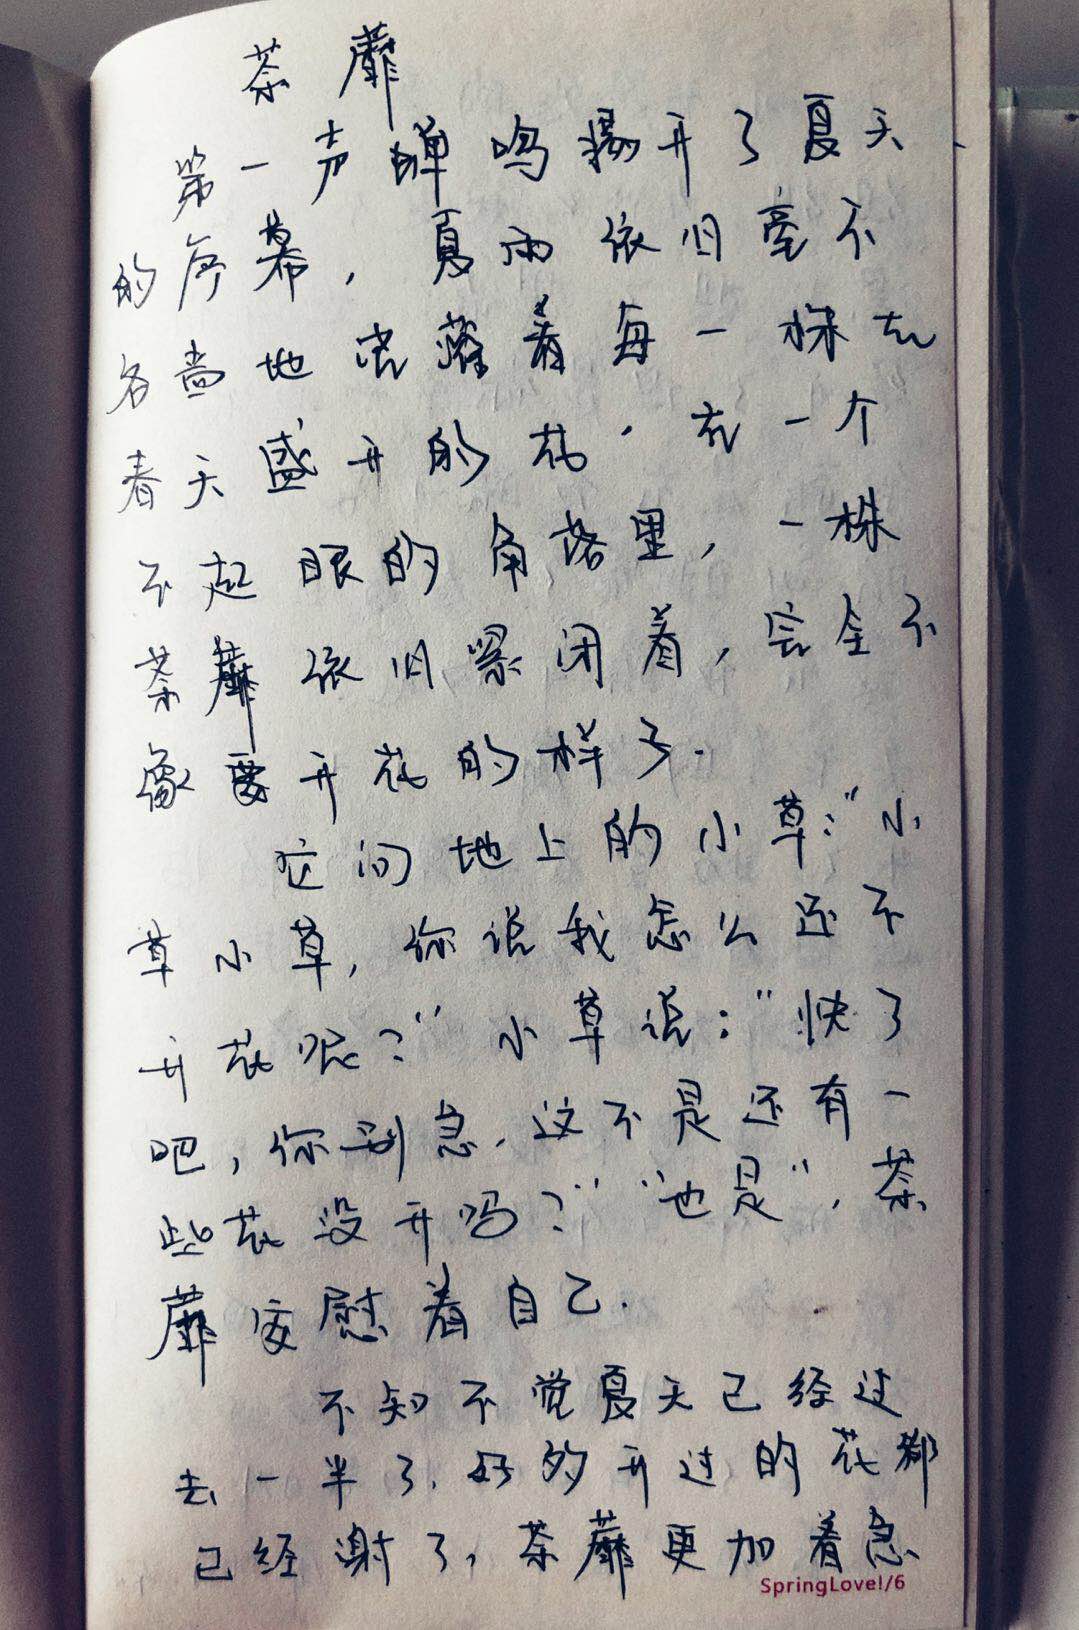 荼蘼
第一声蝉鸣揭开了夏天
的序幕，夏雨依旧毫不
各啬地滋养着每一株在
春天盛开的花，在一个
不起眼的角落里，一株
荼蘼依旧紧闭着，完全不
像要开花的样子.
它问地上的小草："小
草小草，你说我怎么还不
开花呢？"小草说："快了
吧，你别急.这不是还有一
些花没开吗？""也是"，荼
蘼安慰着自己.
不知不觉夏天已经过
去一半了.好多开过的花都
已经谢了，荼蘼更加着急
SpringLove!/6